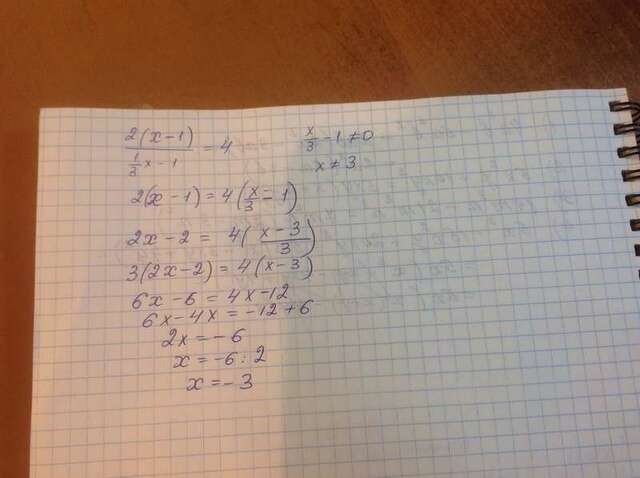 2(x-1)/(1/3 x - 1) = 4    x/3 - 1 ≠ 0
x ≠ 3
2(x - 1) = 4(x/3 - 1)
2x - 2 = 4((x - 3)/3)
3(2x - 2) = 4(x - 3)
6x - 6 = 4x - 12
6x - 4x = -12 + 6
2x = -6
x = -6 : 2
x = -3